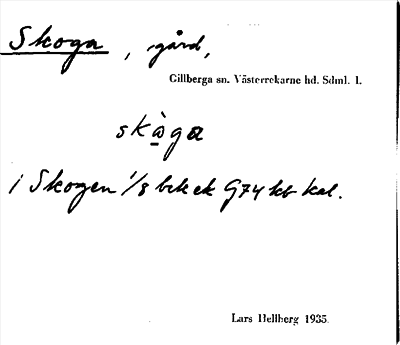 Skoga, gård,
Gillberga sn. Västerrekarne hd. Sdml. l.
skɷ̀̀ga
i Skogen 1/8 bekek G74 kb kal.
Lars Hellberg 1935.